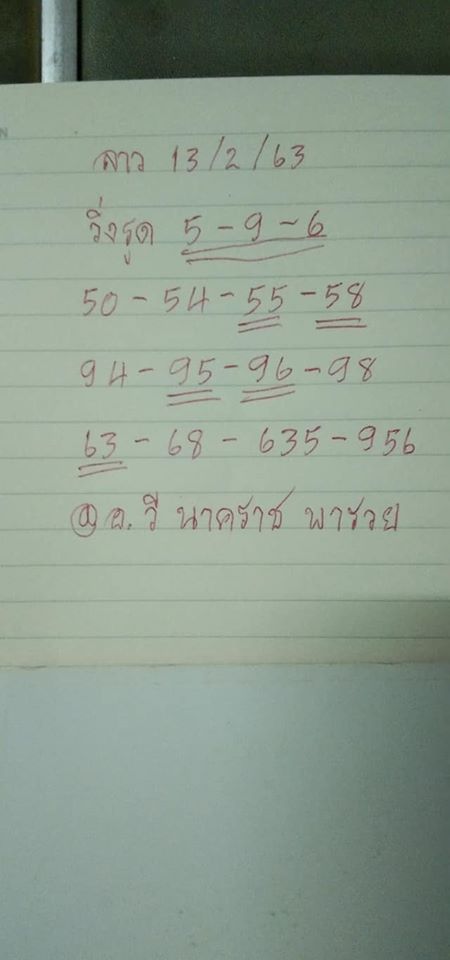 ลาว 13/2/63
วิ่งรูด 5-9-6
50-54-55-58
94-95-96-98
63-68-635-956
@อ.วี นาคราช พารวย